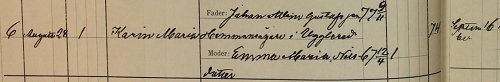 Fader: Johan Albin Gustafsson 77 9/11
6 Augusti 28 1 Karin Maria Hemmansägare i Ugglered 74 Septem 16
Moder: Emma Maria Nils 67 12/4 1
dotter